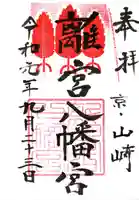 奉拝
京・山崎
離宮八幡宮
令和元年九月二十三日